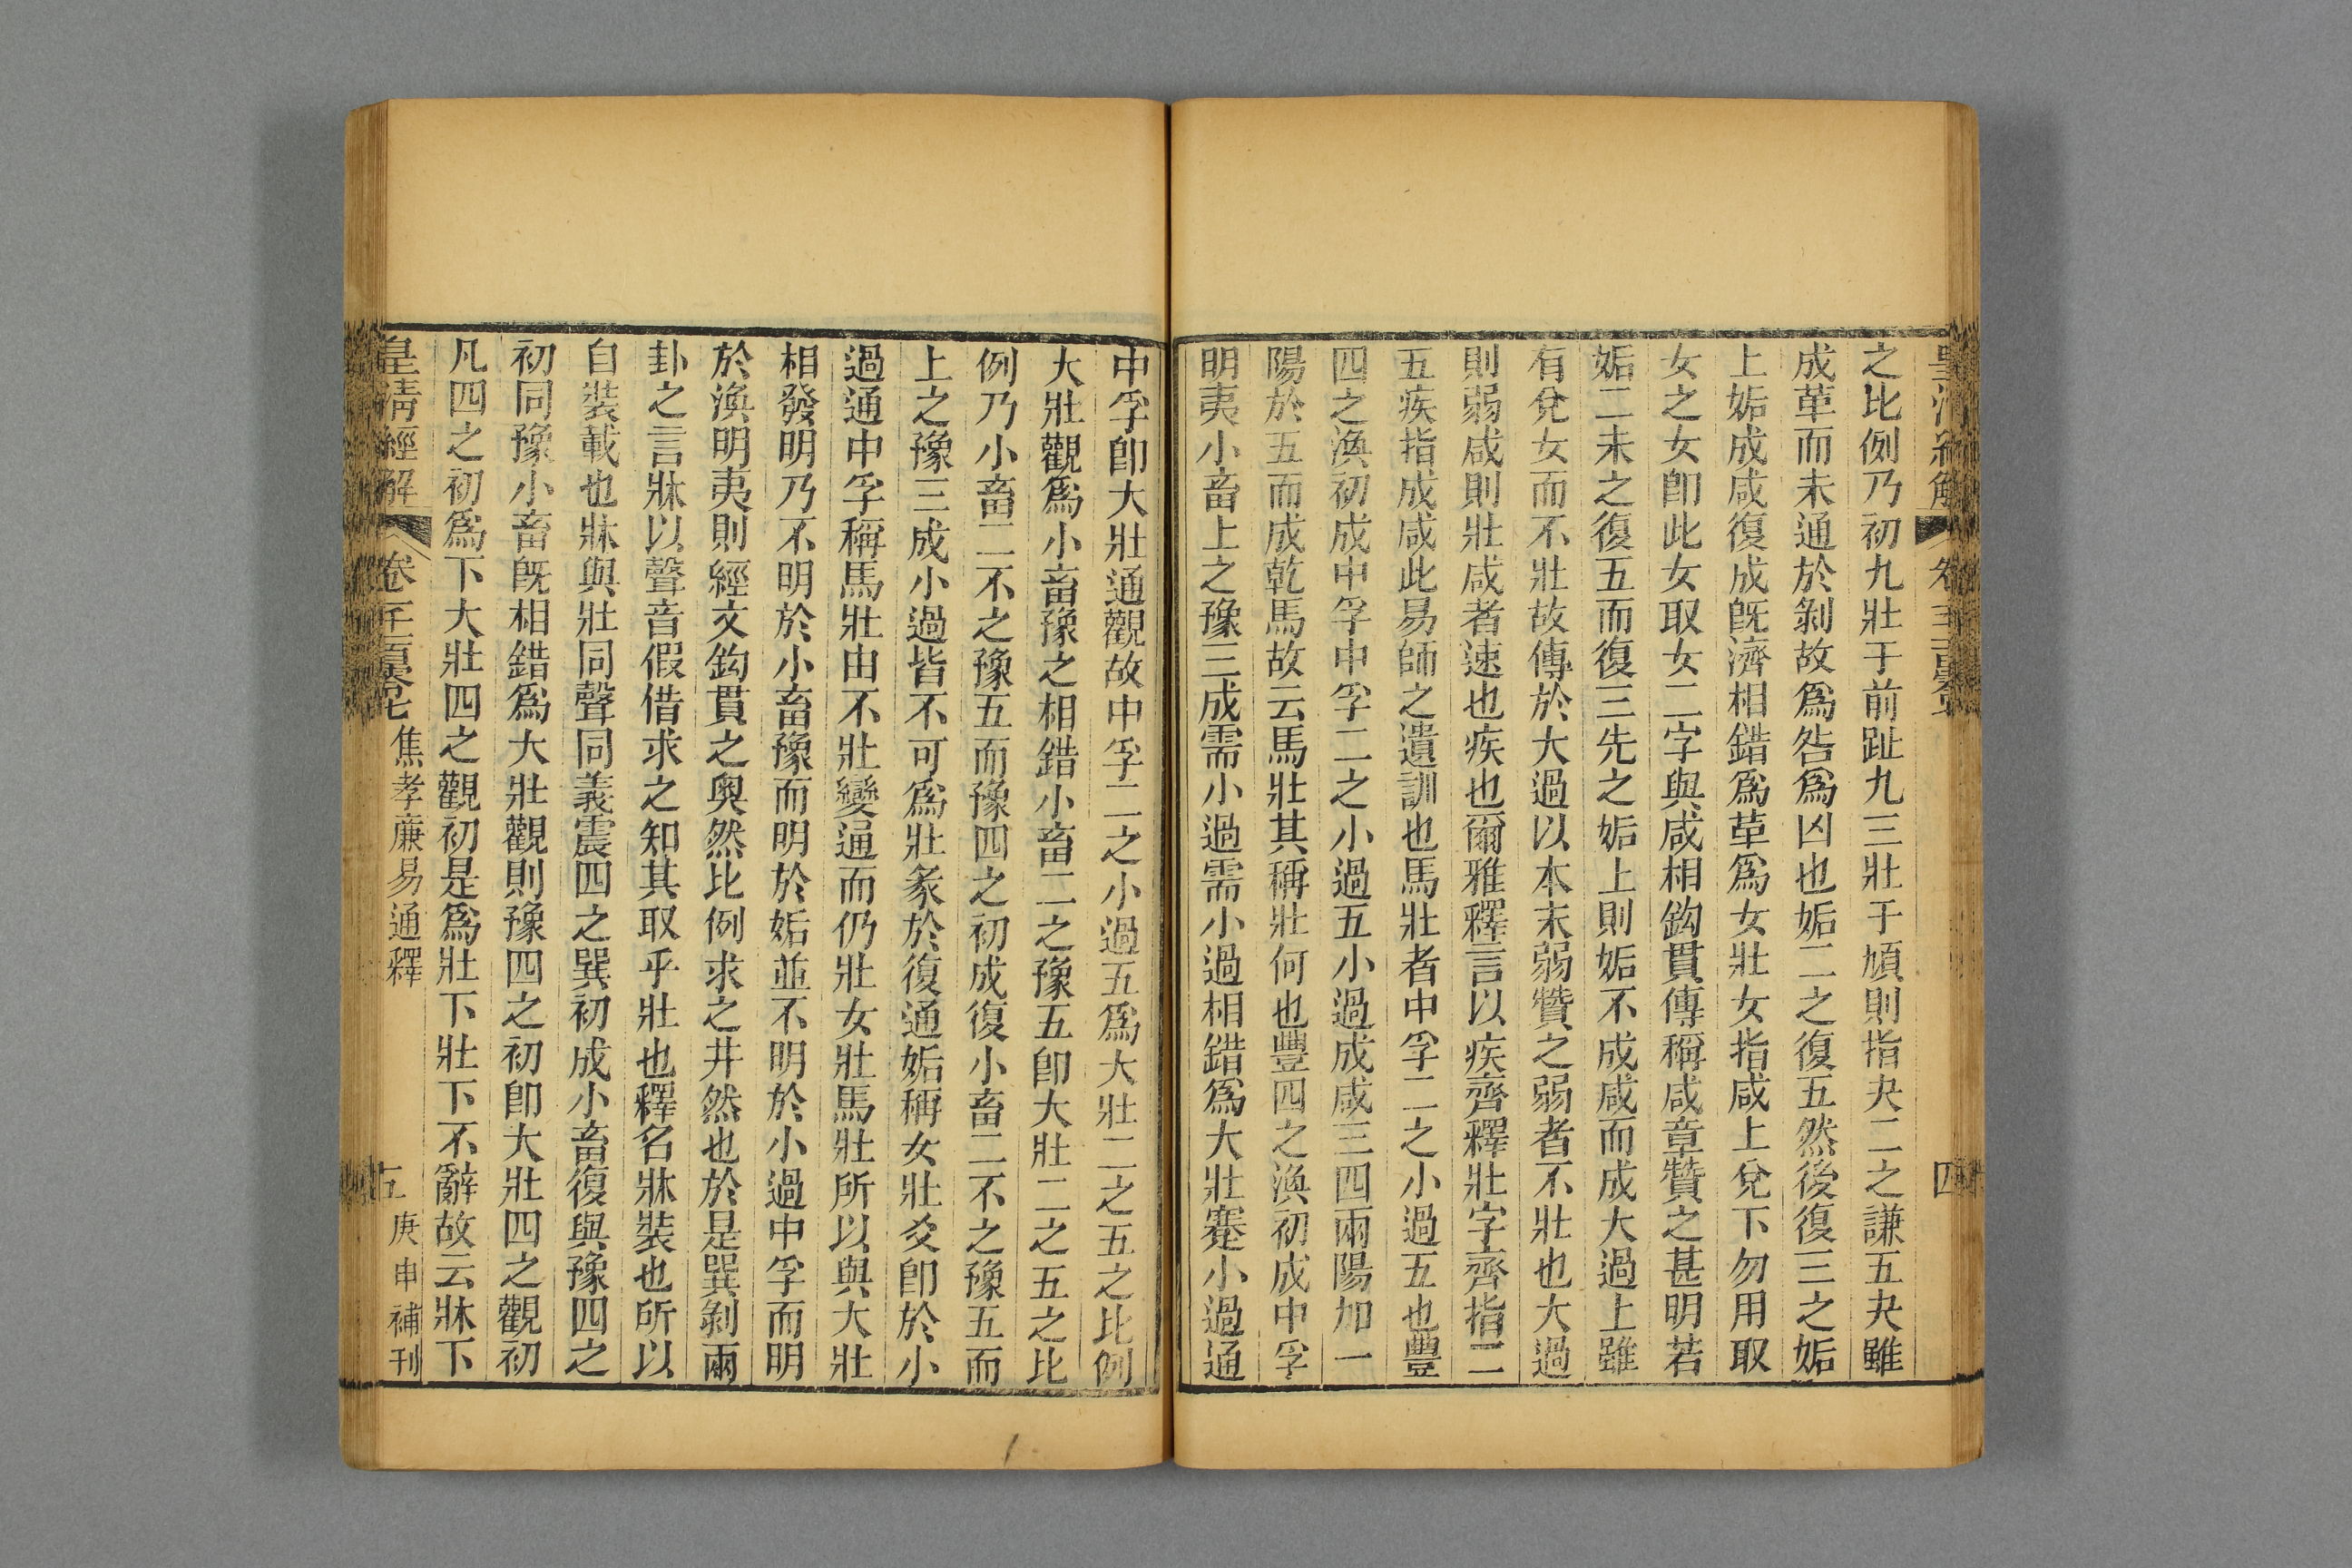 之比例乃初九壯于前趾九三壯于頄則指夬二之謙五夬雖
成革而未通於剝故爲咎爲凶也姤二之復五然後復三之姤
上姤成咸復成旣濟相錯爲革爲女壯女指咸上兌下勿用取
女之女卽此女取女二字與咸相鉤貫傳稱咸章贊之甚明若
姤二未之復五而復三先之姤上則姤不成咸而成大過上雖
有兌女而不壯故傳於大過以本末弱贊之弱者不壯也大過
則弱咸則壯咸者速也疾也爾雅釋言以疾齊釋壯字齊指二
五疾指成咸此易師之遺訓也馬壯者中孚二之小過五也豐
四之渙初成中孚中孚二之小過五小過成咸三四兩陽加一
陽於五而成乾馬故云馬壯其稱壯何也豐四之渙初成中孚
明夷小畜上之豫三成需小過需小過相錯爲大壯蹇小過通
中孚卽大壯通觀故中孚二之小過五爲大壯二之五之比例
大壯觀爲小畜豫之相錯小畜二之豫五卽大壯二之五之比
例乃小畜二不之豫五而豫四之初成復小畜二不之豫五而
上之豫三成小過皆不可爲壯彖於復通姤稱女壯爻卽於小
過通中孚稱馬壯由不壯變通而仍壯女壯馬壯所以與大壯
相發明乃不明於小畜豫而明於姤並不明於小過中孚而明
於渙明夷則經文鉤貫之奧然比例求之井然也於是巽剝兩
卦之言牀以聲音假借求之知其取乎壯也釋名牀裝也所以
自裝載也牀與壯同聲同義震四之巽初成小畜復與豫四之
初同豫小畜旣相錯爲大壯觀則豫四之初卽大壯四之觀初
凡四之初爲下大壯四之觀初是爲壯下壯下不辭故云牀下
皇淸經解 卷 焦孝廉易通釋 五 庚申補刊